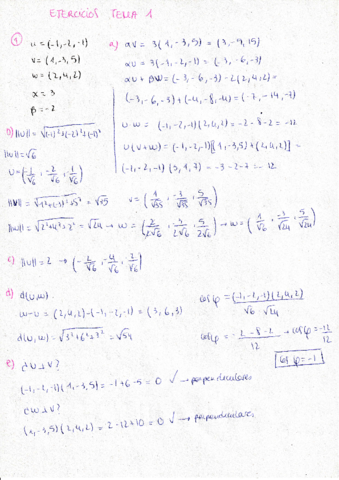 EJERCICIOS TEMA 1
① u = (-1,-2,-1)
v = (1,-3,5)
w = (2,4,2)
α = 3
β = -2
a) αv = 3(1,-3,5) = (3,-9,15)
αu = 3(-1,-2,-1) = (-3,-6,-3)
αu + βw = (-3,-6,-3) - 2(2,4,2) =
(-3,-6,-3) + (-4,-8,-4) = (-7,-14,-7)
u·w = (-1,-2,-1)(2,4,2) = -2-8-2 = -12
u(v+w) = (-1,-2,-1)[(1,-3,5)+(2,4,2)] =
(-1,-2,-1)(3,1,7) = -3-2-7 = -12
b) ||u|| = √(-1)²+(-2)²+(-1)²
||u|| = √6
u = (-1/√6, -2/√6, 1/√6)
||v|| = √1²+(-3)²+5² = √35 v = (1/√35, -3/√35, 5/√35)
||w|| = √2²+4²+2² = √24 → w = (2/2√6, 3/2√6, 5/2√6) → w = (1/√6, -3/√24, 5/√24)
c) ||u|| = 2 → (-2/√6, -4/√6, 2/√6)
d) d(u,w)
w-u = (2,4,2)-(-1,-2,-1) = (3,6,3)
d(u,w) = √3²+6²+3² = √54
cos φ = (-1,-2,-1)(2,4,2) / √6 √24
cos φ = -2-8-2 / 12 → cos φ = -12/12
cos φ = -1
e) ¿u⊥v?
(-1,-2,-1)(1,-3,5) = -1+6-5 = 0 ✓ → perpendiculares
¿w⊥v?
(1,-3,5)(2,4,2) = 2-12+10 = 0 ✓ → perpendiculares